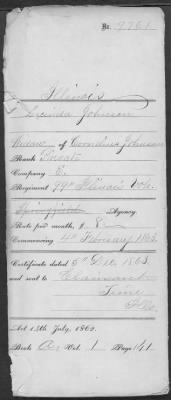 No. 9761
Illinois
Lucinda Johnson
Widow of Cornelius Johnson
Rank Private
Company E.
Regiment 99th Illinois Vols.
Springfield Agency.
Rate per month, $ 8
Commencing 4th February 1863.
Certificate dated 5th Dec 1863
and sent to Claimant
Ills.
Act 14th July, 1862.
Book A, Vol. 1 Page 141